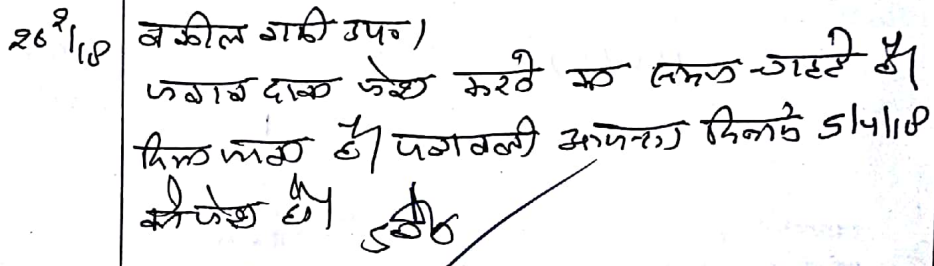 26/2/18 वकील वादी उप०।
जवाब दावा पेश करने का समय चाहते है।
दिया जाता है। पत्रावली आयन्दा दिनांक 5/4/18
को पेश हो।